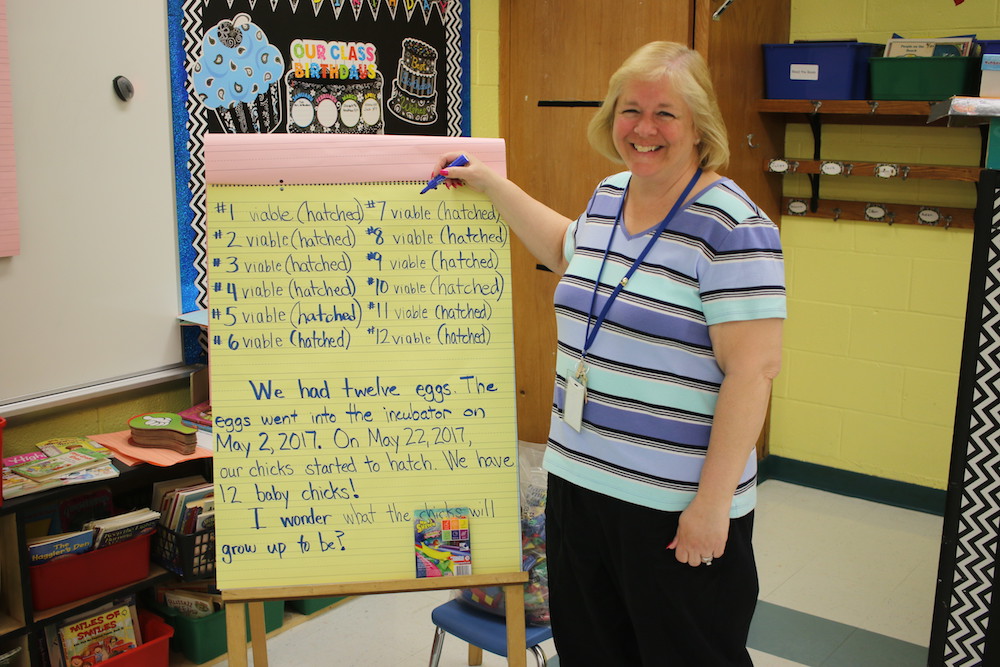 OUR CLASS
BIRTHDAYS
#1 viable (hatched) #7 viable (hatched)
#2 viable (hatched) #8 viable (hatched)
#3 viable (hatched) #9 viable (hatched)
#4 viable (hatched) #10 viable (hatched)
#5 viable (hatched) #11 viable (hatched)
#6 viable (hatched) #12 viable (hatched)
We had twelve eggs. The
eggs went into the incubator on
May 2, 2017. On May 22, 2017,
our chicks started to hatch. We have
12 baby chicks!
I wonder what the chicks will
grow up to be?
MILES OF
SMILES